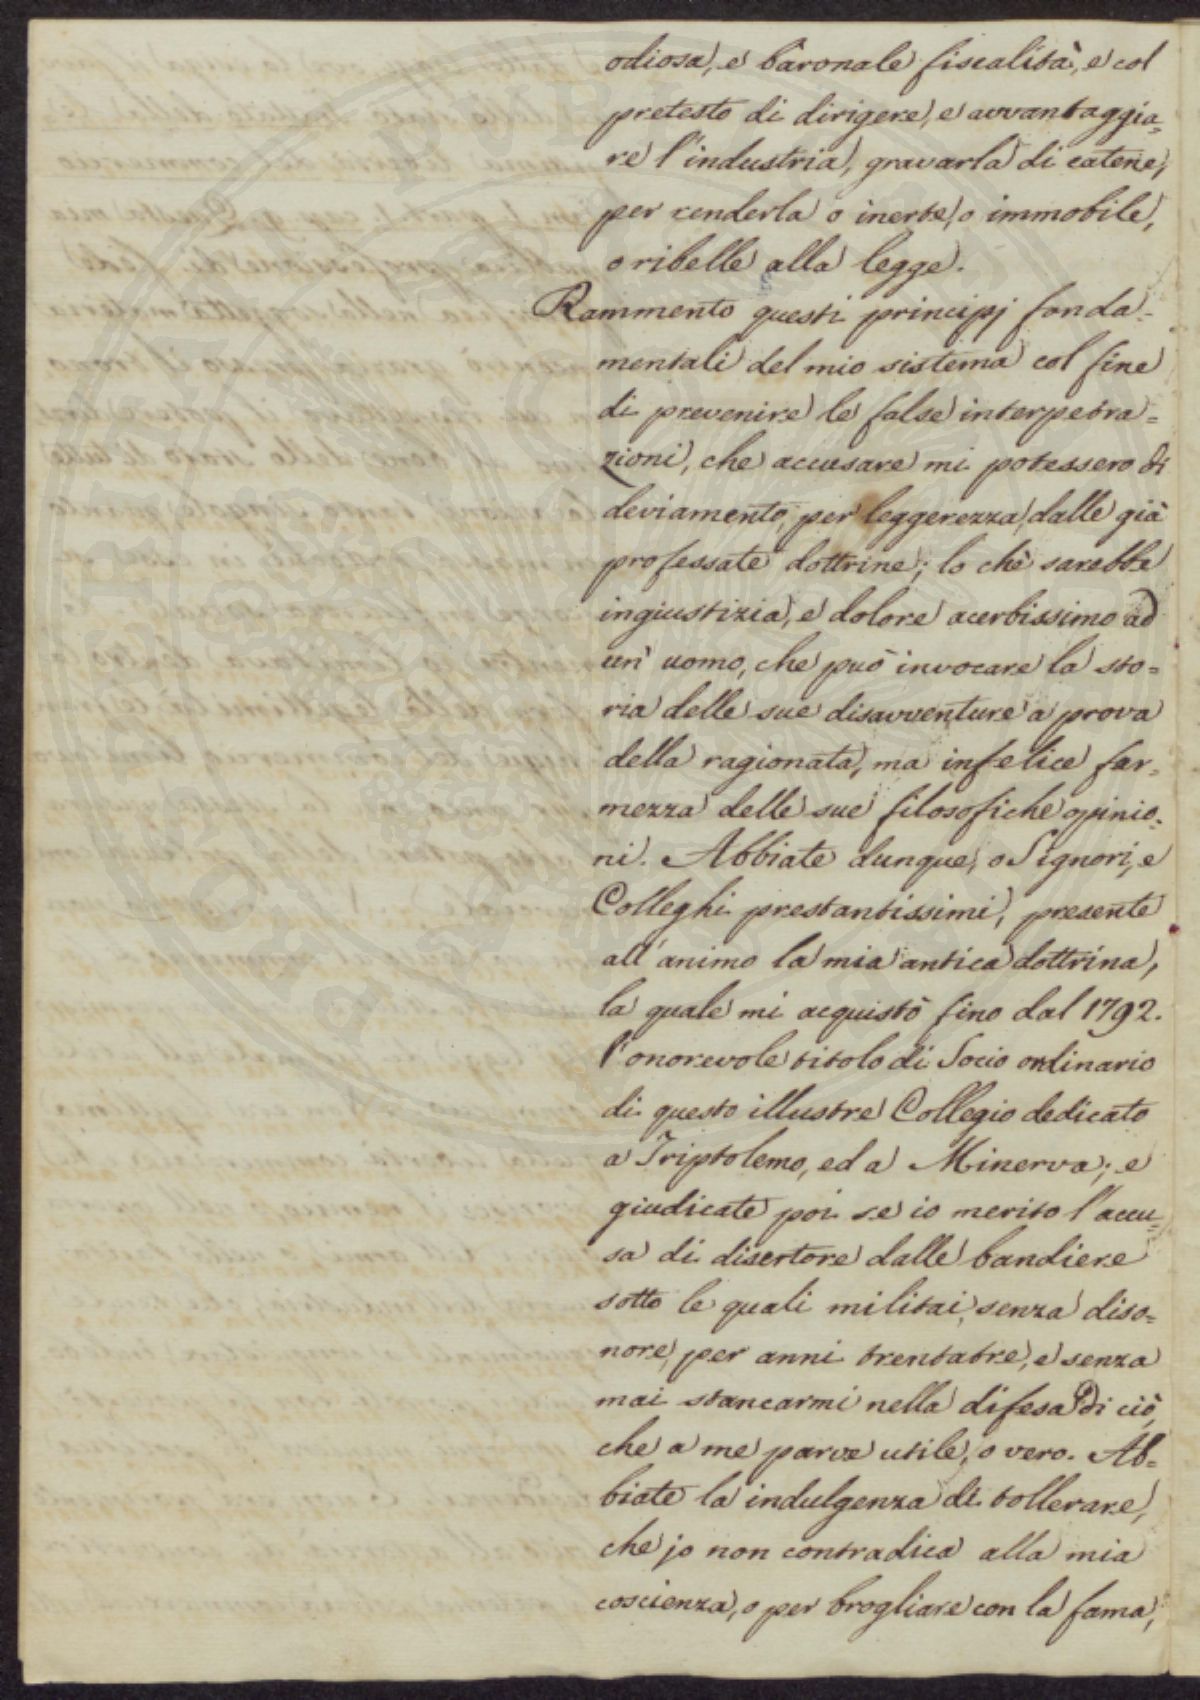 odiosa, e baronale fiscalità, e col
pretesto di dirigere, e avvantaggia=
re l'industria, gravarla di catene,
per renderla o inerte, o immobile,
o ribelle alla legge.
Rammento questi principj fonda=
mentali del mio sistema col fine
di prevenire le false interpetra=
zioni, che accusare mi potessero di
deviamento, per leggerezza, dalle già
professate dottrine; lo chè sarebbe
ingiustizia, e dolore acerbissimo ad
un' uomo, che può invocare la sto=
ria delle sue disavventure a prova
della ragionata, ma infelice fer=
mezza delle sue filosofiche opinio=
ni. Abbiate dunque, o Signori, e
Colleghi prestantissimi, presente
all'animo la mia antica dottrina,
la quale mi acquistò fino dal 1792.
l'onorevole titolo di Socio ordinario
di questo illustre Collegio dedicato
a Triptolemo, ed a Minerva; e
giudicate poi se io merito l'accu=
sa di disertore dalle bandiere
sotto le quali militai, senza diso=
nore, per anni trentatre, e senza
mai stancarmi nella difesa di ciò,
che a me parve utile, o vero. Ab=
biate la indulgenza di tollerare,
che jo non contradica alla mia
coscienza, o per brogliare con la fama,